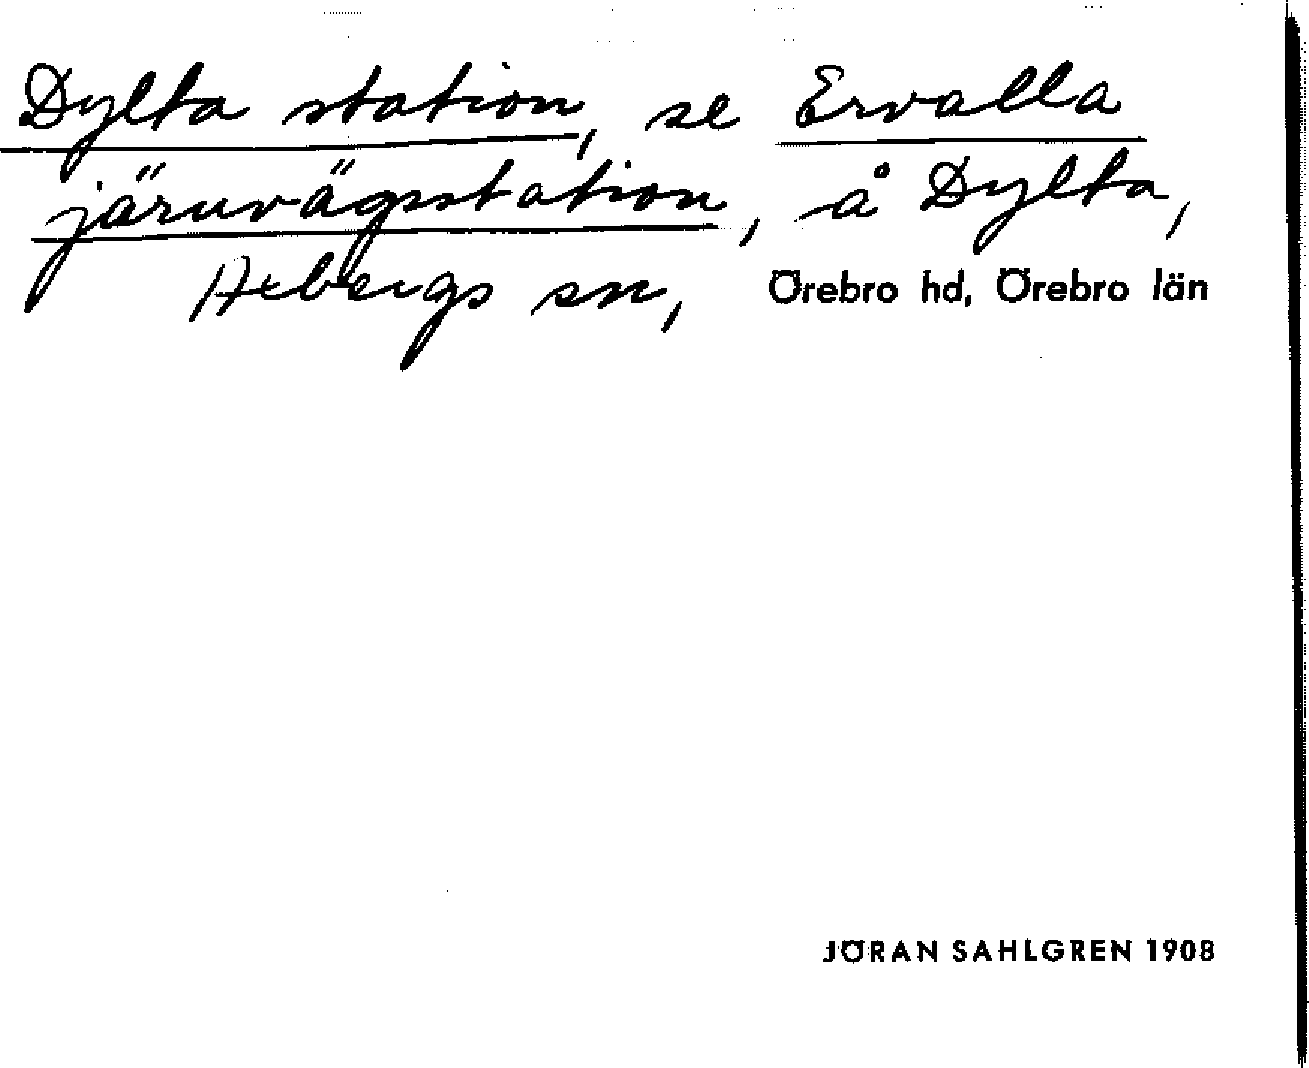 Dylta station, se Ervalla
järnvägsstation, å Dylta,
Axbergs sn, Örebro hd, Örebro län
JÖRAN SAHLGREN 1908